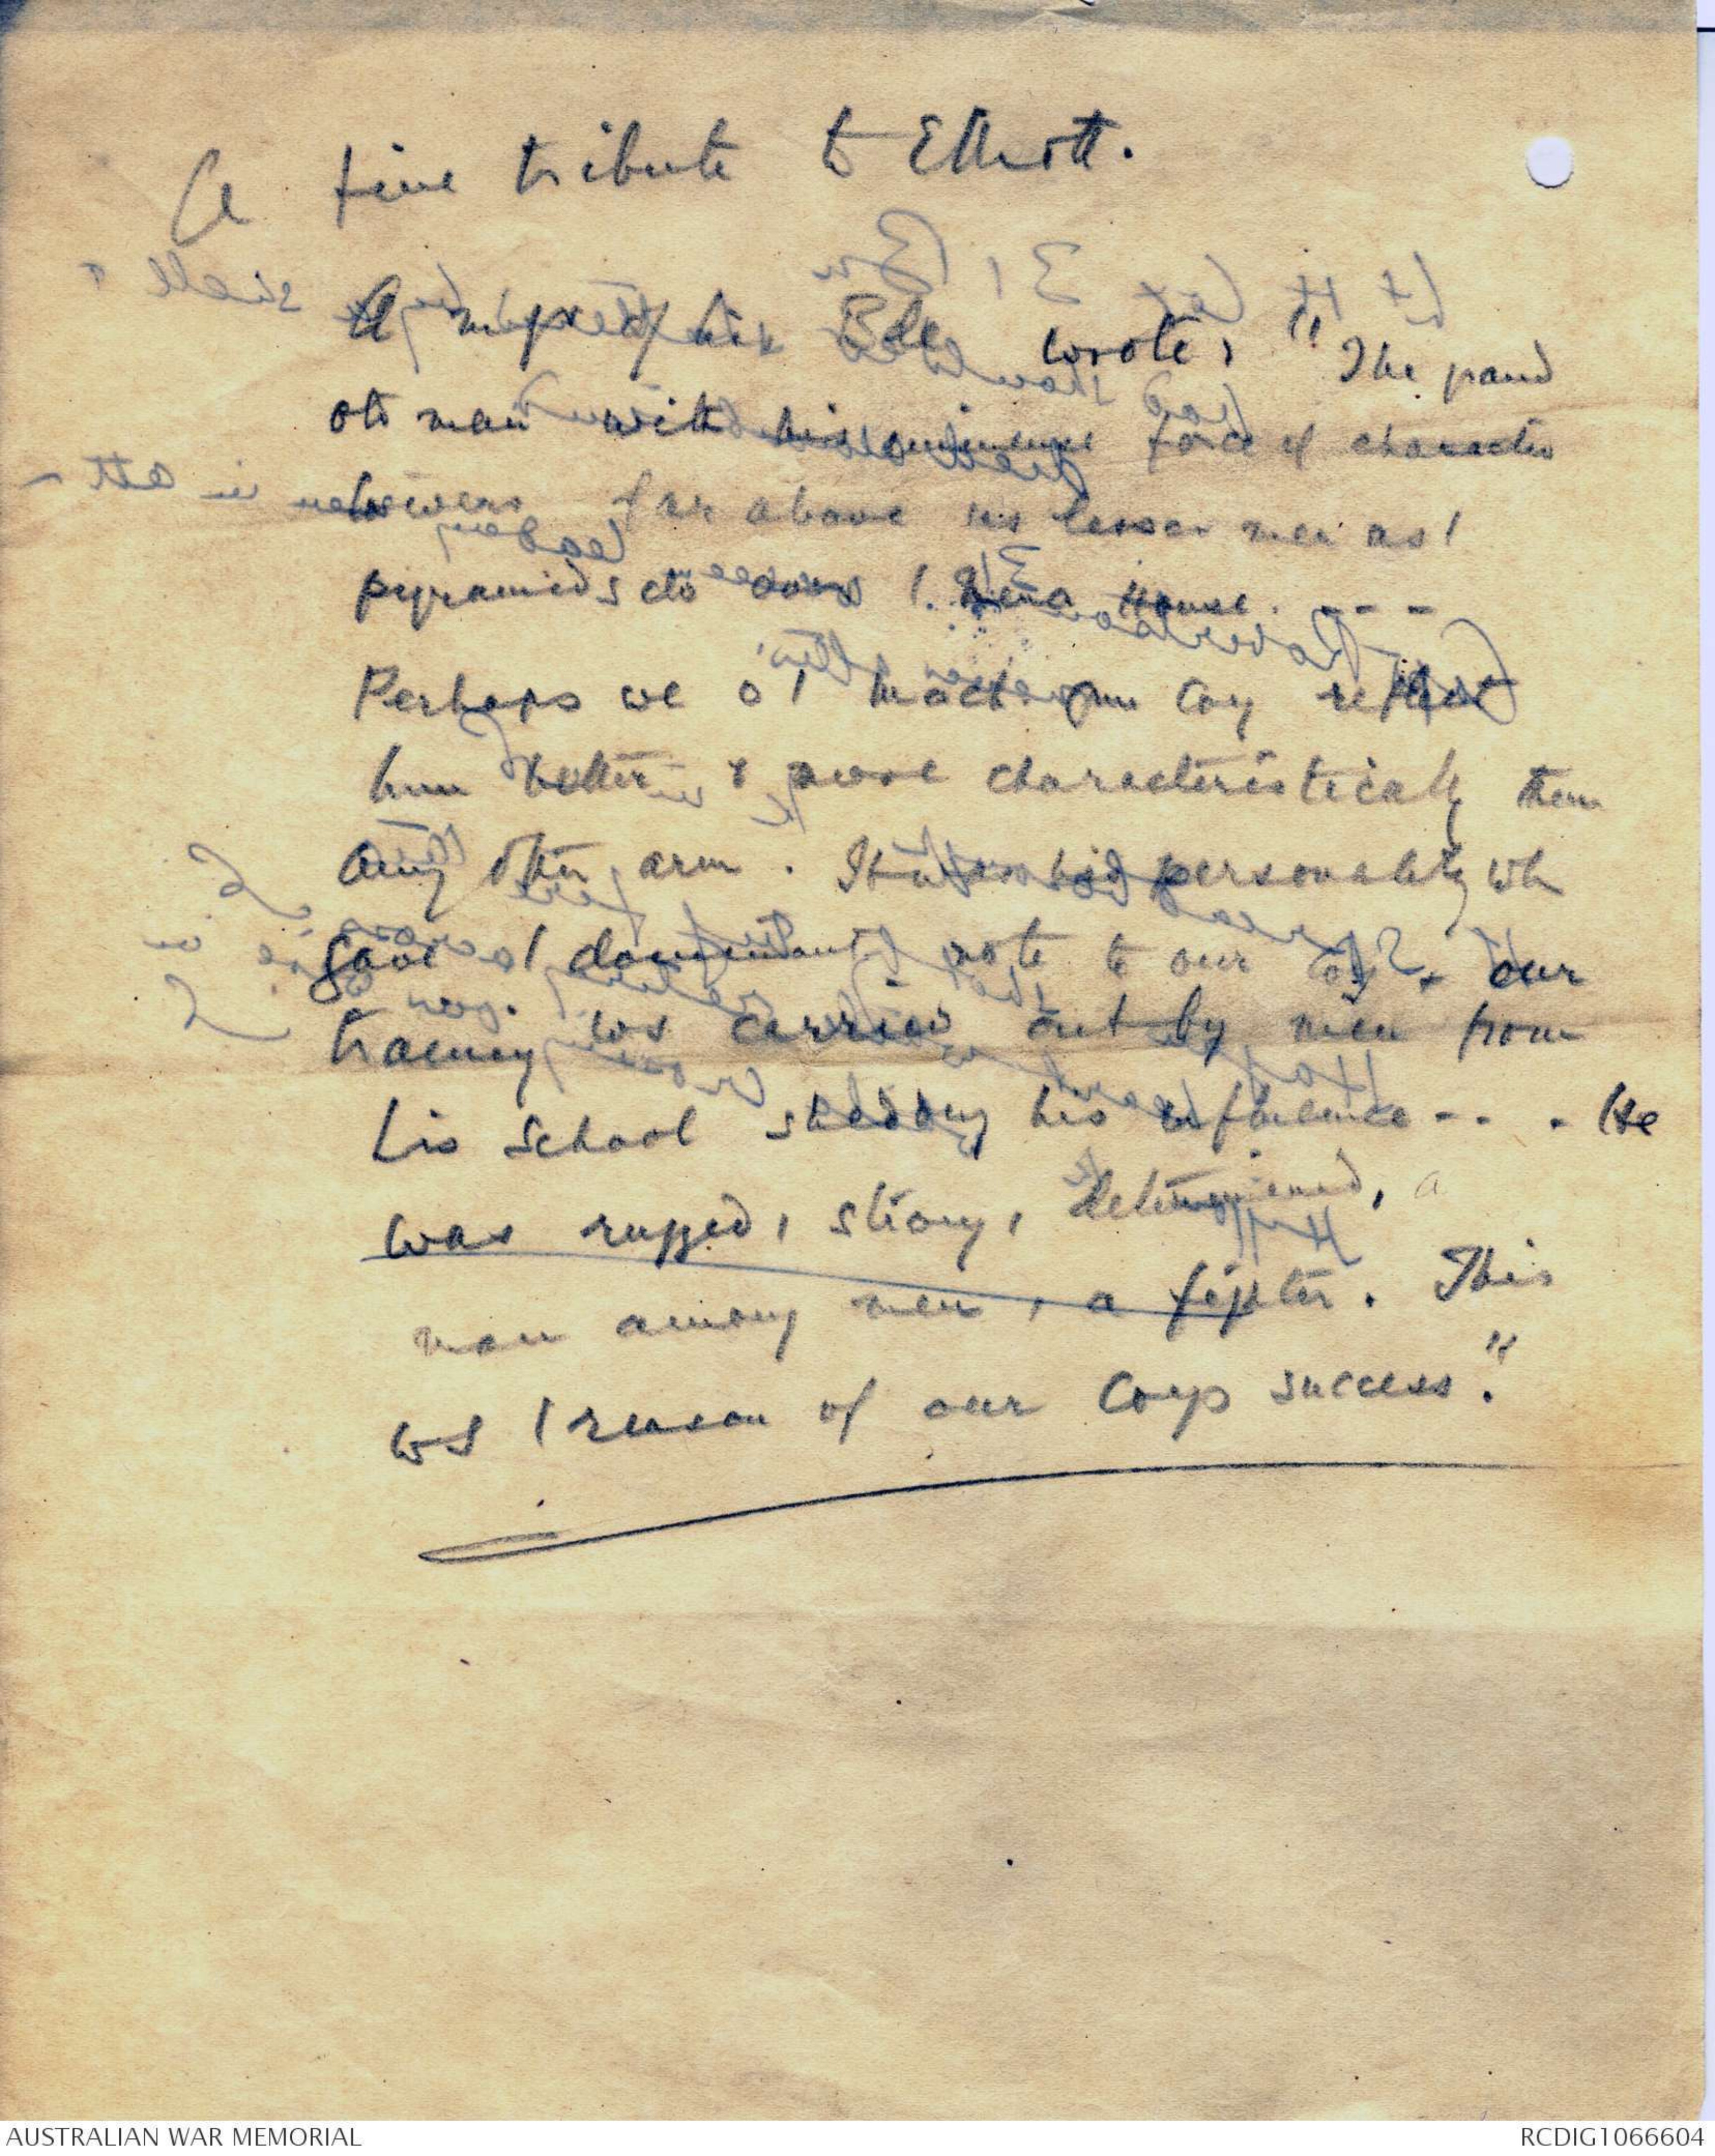 A fine tribute to Elliott.
A wrote, "The grand
old man with his immense force of character
towers far above us lesser men as /
pyramids do above /. Mena House. - - -
Perhaps we o / mach. gun Coy reflect
him better & more characteristically than
any other arm. It was his personality wh
gave / dominant note to our Coy & our
training ws carried out by men from
his school shedding his influence - - . He
was rugged, strong, determined, a
man among men, a fighter. This
ws / reason of our Corps success."
AUSTRALIAN WAR MEMORIAL
RCDIG1066604